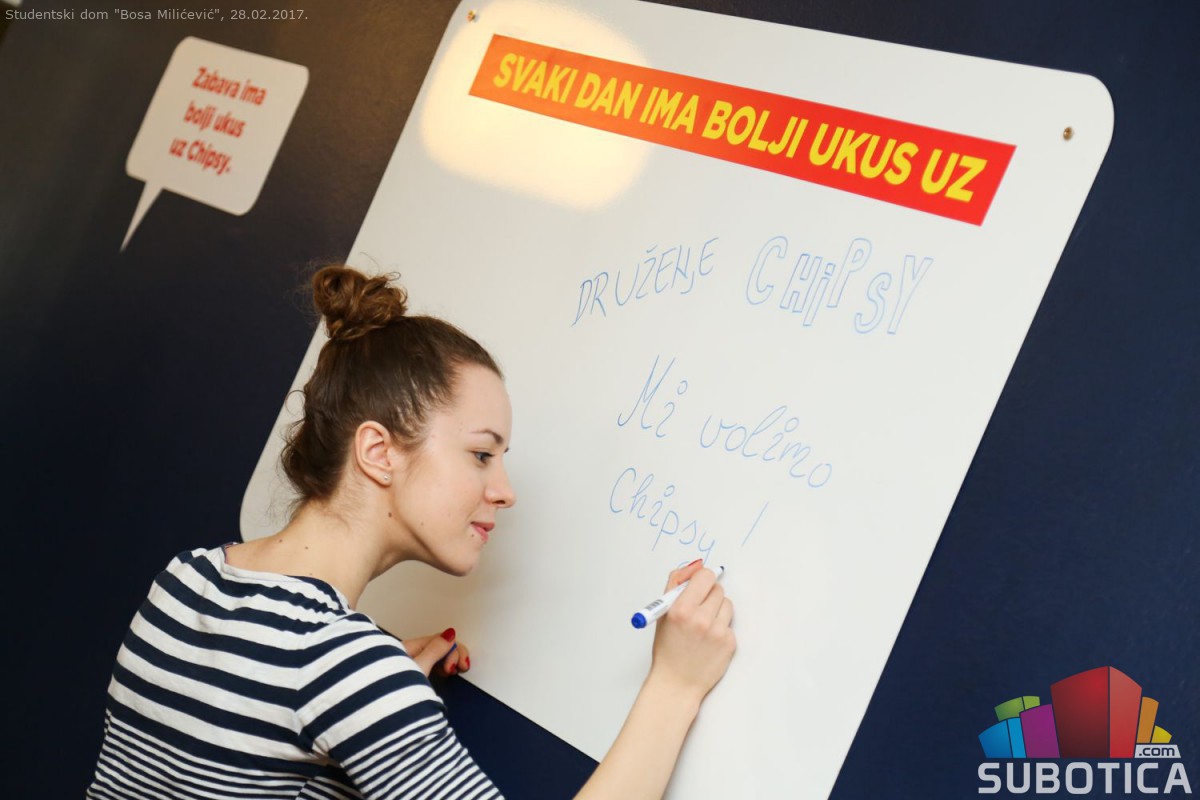 Studentski dom "Bosa Milićević", 28.02.2017.
Zabava ima
bolji ukus
uz Chipsy.
SVAKI DAN IMA BOLJI UKUS UZ
DRUŽENJE CHiPSY
Mi volimo
Chipsy!
.com
SUBOTICA